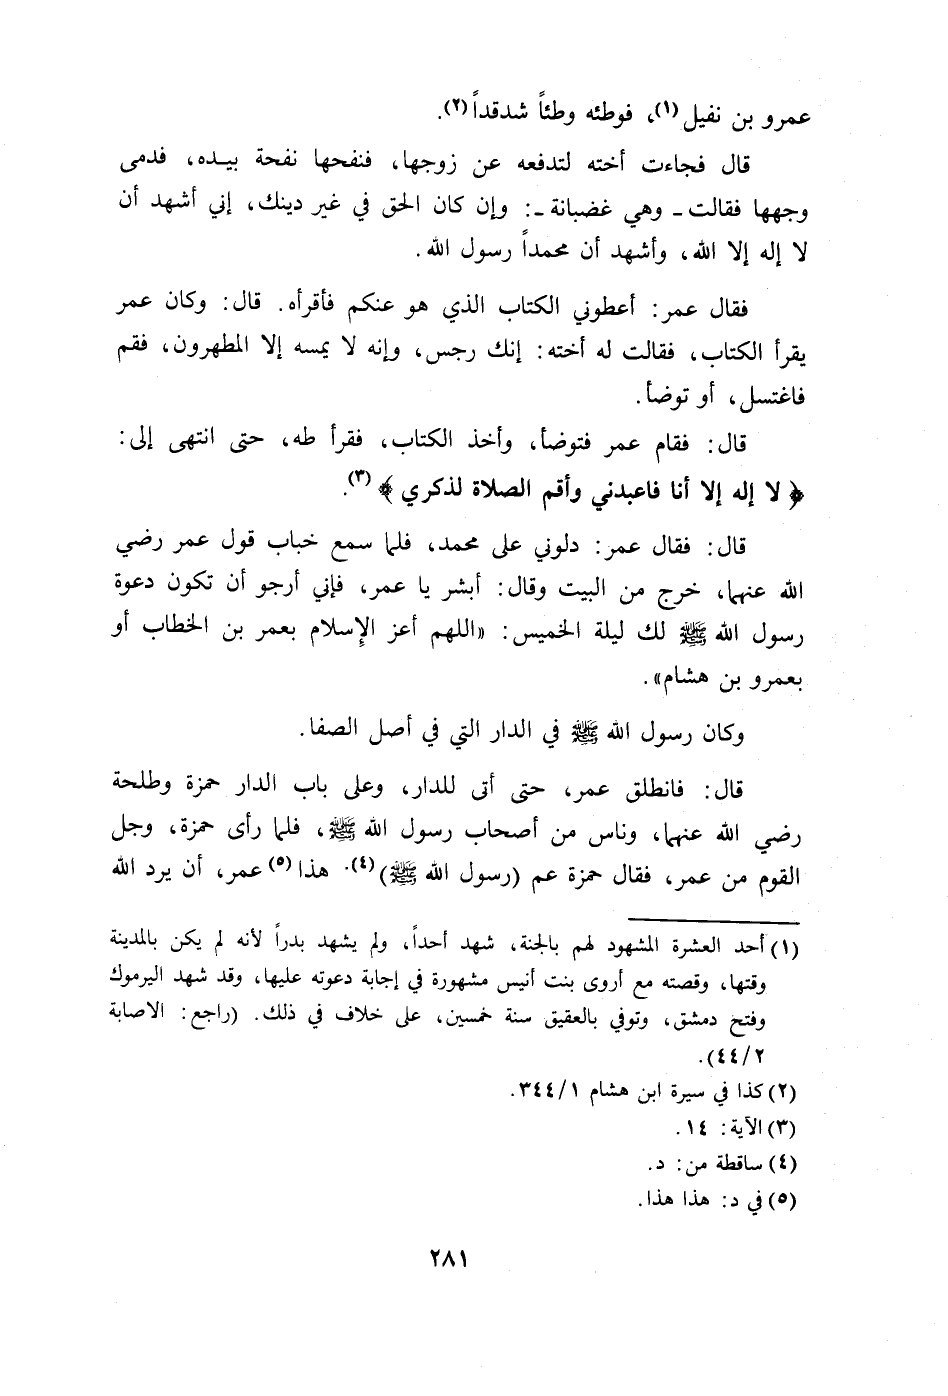 عمرو بن نفيل(١)، فوطئه وطئاً شدقداً(٢).
قال فجاءت أخته لتدفعه عن زوجها، فنفحها نفحة بيده، فدمى
وجهها فقالت ـ وهي غضبانة ـ: وإن كان الحق في غير دينك، إني أشهد أن
لا إله إلا الله، وأشهد أن محمداً رسول الله.
فقال عمر: أعطوني الكتاب الذي هو عنكم فأقرأه. قال: وكان عمر
يقرأ الكتاب، فقالت له أخته: إنك رجس، وإنه لا يمسه إلا المطهرون، فقم
فاغتسل، أو توضأ.
قال: فقام عمر فتوضأ، وأخذ الكتاب، فقرأ طه، حتى انتهى إلى:
﴿ لا إله إلا أنا فاعبدني وأقم الصلاة لذكري ﴾(٣).
قال: فقال عمر: دلوني على محمد، فلما سمع خباب قول عمر رضي
الله عنهما، خرج من البيت وقال: أبشر يا عمر، فإني أرجو أن تكون دعوة
رسول الله ﷺ لك ليلة الخميس: «اللهم أعز الإسلام بعمر بن الخطاب أو
بعمرو بن هشام».
وكان رسول الله ﷺ في الدار التي في أصل الصفا.
قال: فانطلق عمر، حتى أتى للدار، وعلى باب الدار حمزة وطلحة
رضي الله عنهما، وناس من أصحاب رسول الله ﷺ، فلما رأى حمزة، وجل
القوم من عمر، فقال حمزة عم (رسول الله ﷺ)(٤). هذا(٥) عمر، أن يرد الله
(١) أحد العشرة المشهود لهم بالجنة، شهد أحداً، ولم يشهد بدراً لأنه لم يكن بالمدينة
وقتها، وقصته مع أروى بنت أنيس مشهورة في إجابة دعوته عليها، وقد شهد اليرموك
وفتح دمشق، وتوفي بالعقيق سنة خمسين، على خلاف في ذلك. (راجع: الاصابة
٤٤/٢).
(٢) كذا في سيرة ابن هشام ٣٤٤/١.
(٣) الآية: ١٤.
(٤) ساقطة من: د.
(٥) في د: هذا هذا.
٢٨١